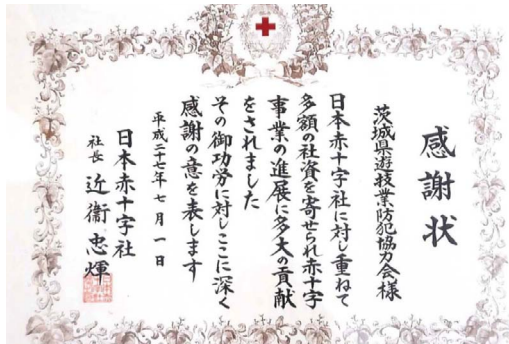 感謝状
茨城県遊技業防犯協力会様
日本赤十字社に対し重ねて
多額の社資を寄せられ赤十字
事業の進展に多大の貢献
をされました
その御功労に対しここに深く
感謝の意を表します
平成二十七年七月一日
日本赤十字社
社長 近衞忠煇